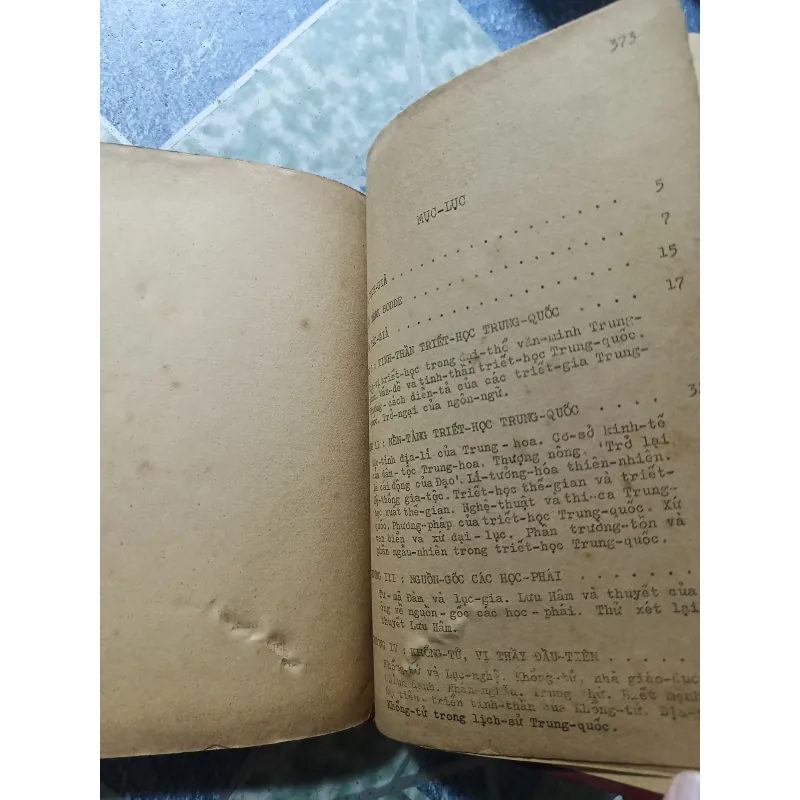 373
MỤC-LỤC
. . . . . . . . . . . . . . . 5
GIẢ . . . . . . . . . . . . . . . 7
BODDE . . . . . . . . . . . . . . . 15
GIẢ . . . . . . . . . . . . . . . 17
: TINH-THẦN TRIẾT-HỌC TRUNG-QUỐC . . . .
triết-học trong đại-thể văn-minh Trung-
Vấn-đề và tinh-thần triết-học Trung-quốc.
cách diễn-tả của các triết-gia Trung-
Trở-ngại của ngôn-ngữ.
II : NỀN-TẢNG TRIẾT-HỌC TRUNG-QUỐC . . . .
địa-lí của Trung-hoa. Cơ-sở kinh-tế
dân-tộc Trung-hoa. Thượng nông. 'Trở lại
cái động của Đạo'. Lí-tưởng-hóa thiên-nhiên.
thống gia-tộc. Triết-học thế-gian và triết-
xuất thế-gian. Nghệ-thuật và thi-ca Trung-
quốc. Phương-pháp của triết-học Trung-quốc. Xứ
biển và xứ đại-lục. Phần trường-tồn và
phần ngẫu-nhiên trong triết-học Trung-quốc.
III : NGUỒN-GỐC CÁC HỌC-PHÁI . . . . . . .
mã Đàm và lục-gia. Lưu Hâm và thuyết của
ông về nguồn-gốc các học-phái. Thử xét lại
thuyết Lưu Hâm.
IV : KHỔNG-TỬ, VỊ THẦY ĐẦU-TIÊN . . . . .
Khổng-tử và Lục-nghệ. Khổng-tử, nhà giáo-dục.
danh. Nhân-nghĩa. Trung thứ. Biết mệnh
tiến-triển tinh-thần của Khổng-tử. Địa-
Khổng-tử trong lịch-sử Trung-quốc.